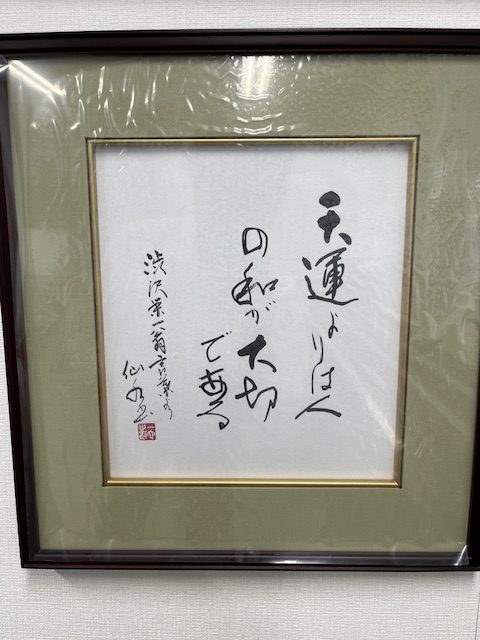 天運よりは人
の和が大切
である
渋沢栄一翁言葉
仙水書